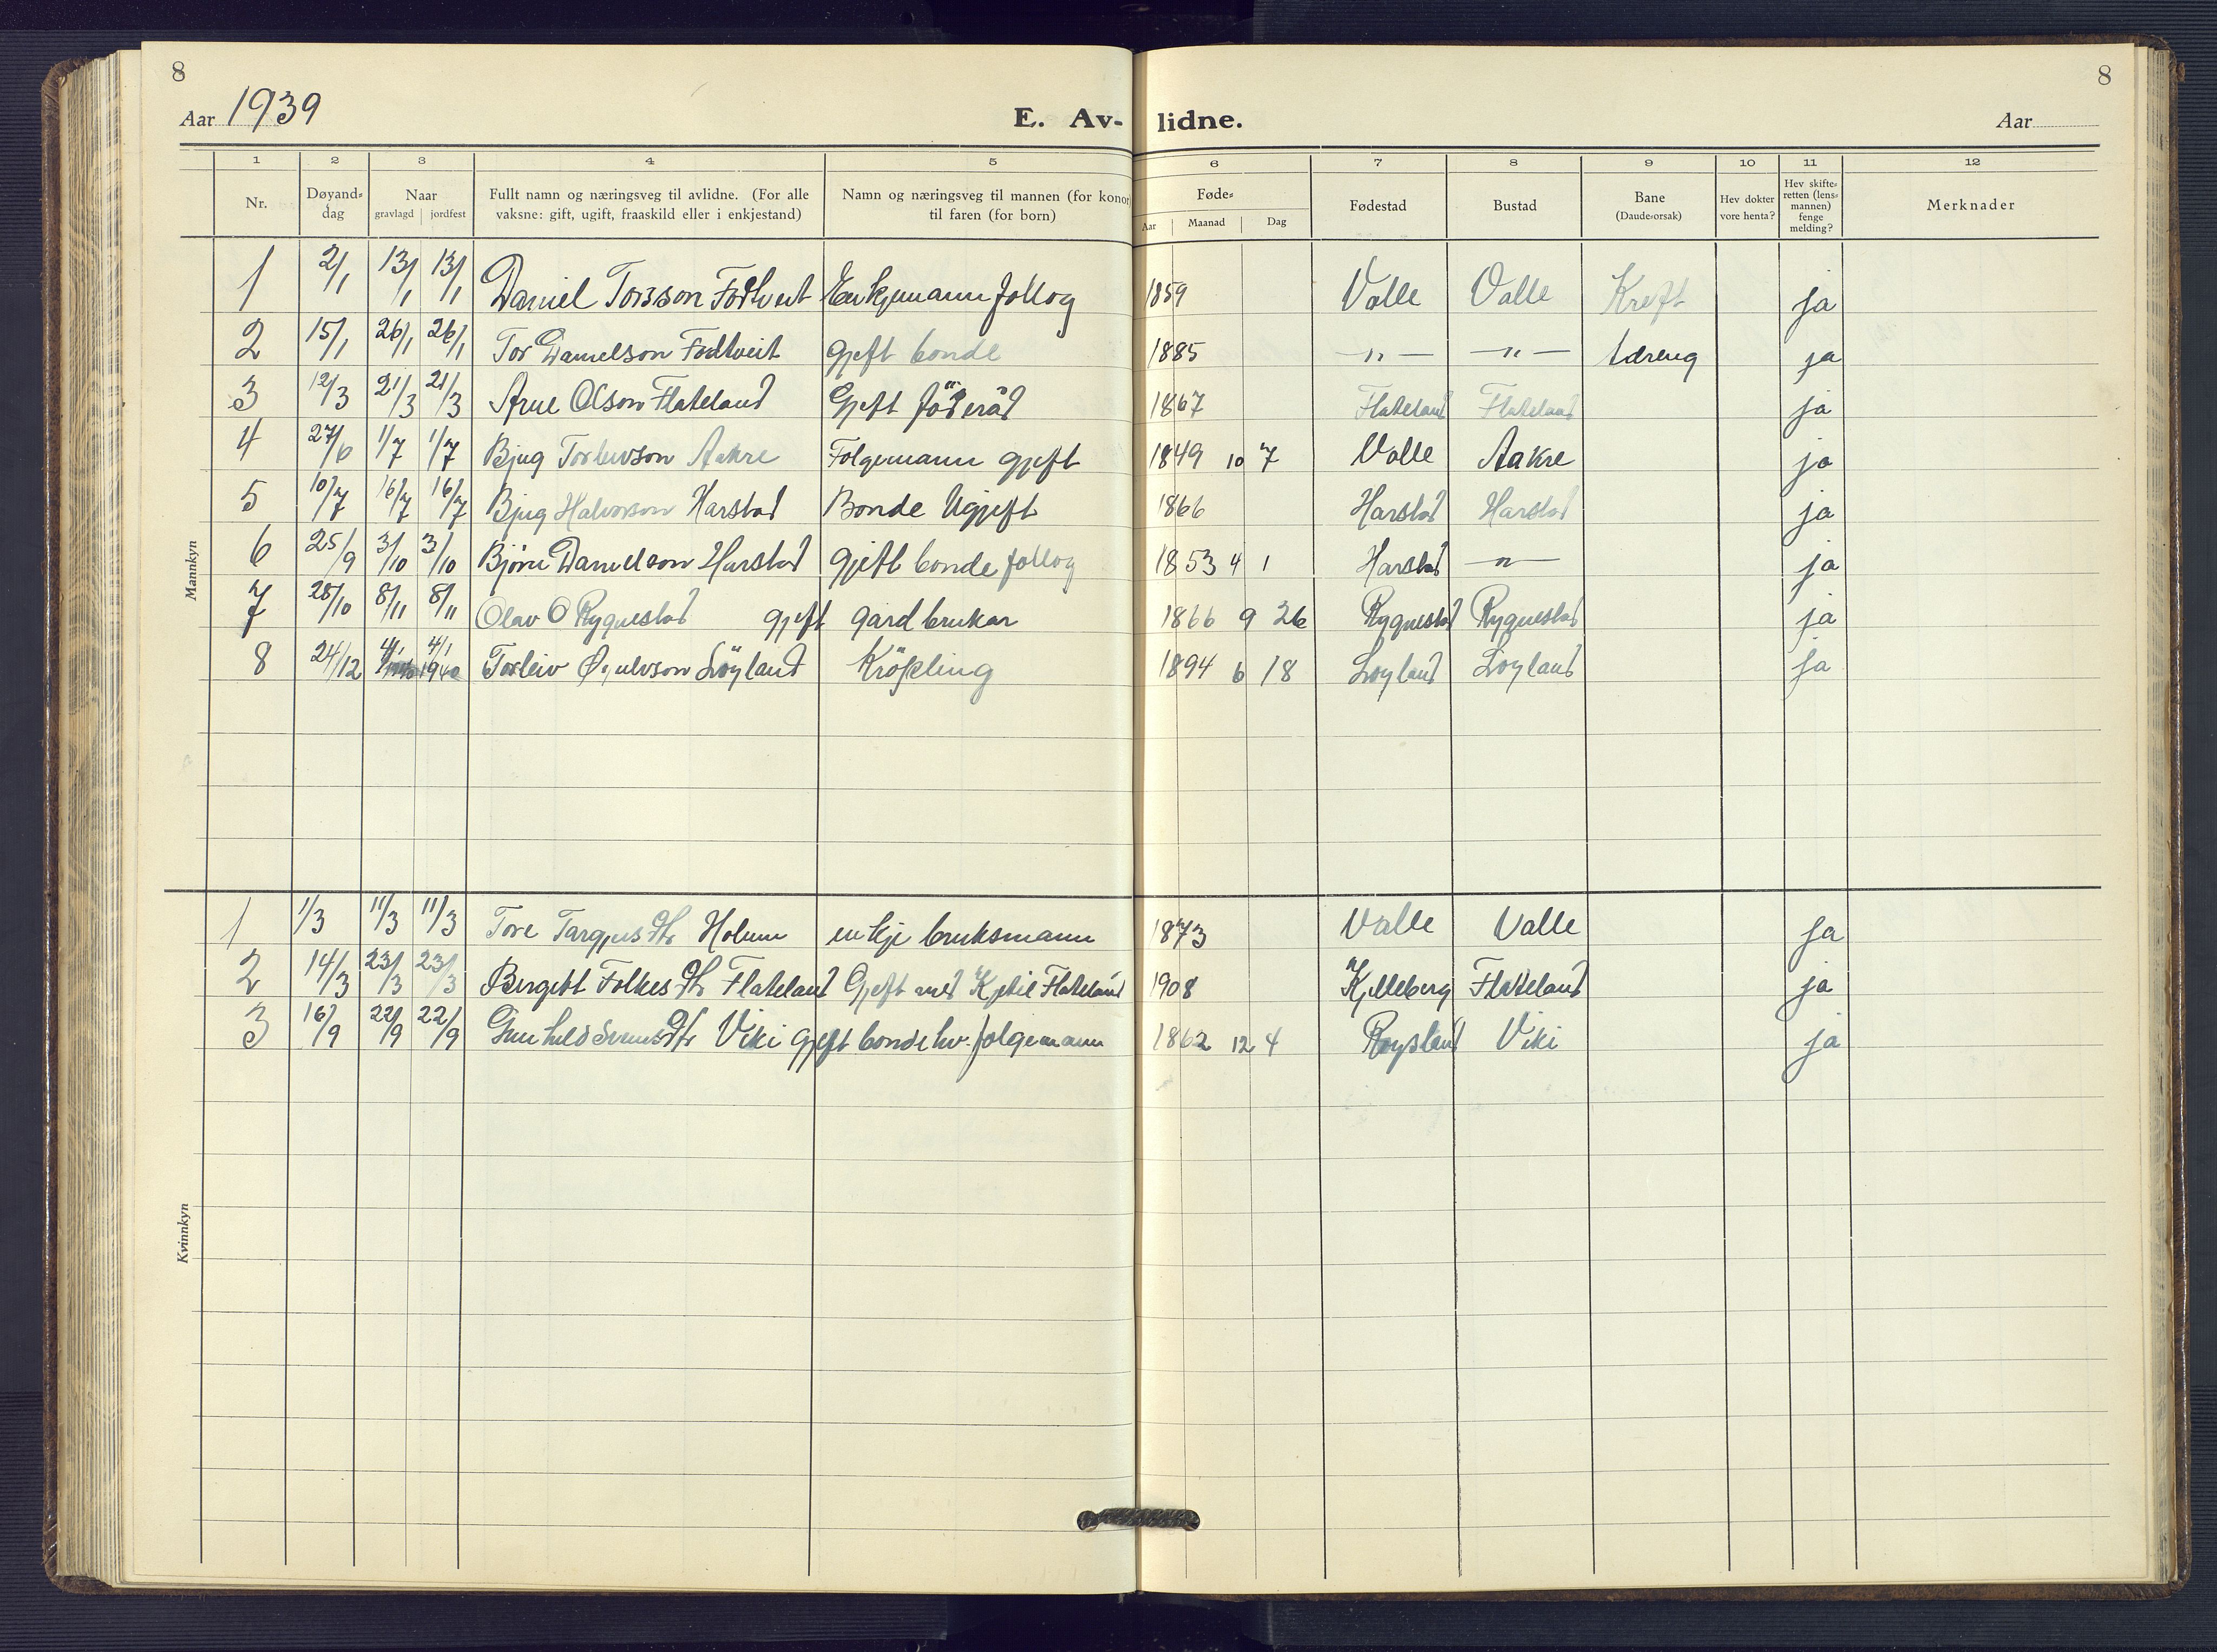 8
8
Aar 1939
E. Av-lidne.
Aar
1 2 3 4 5 6 7 8 9 10 11 12
Nr. Døyand-dag Naar gravlagd jordfest Fullt namn og næringsveg til avlidne. (For alle vaksne: gift, ugift, fraaskild eller i enkjestand) Namn og næringsveg til mannen (for konor) til faren (for born) Føde- Aar Maanad Dag Fødestad Bustad Bane (Daude-orsak) Hev dokter vore henta? Hev skifte-retten (lens-mannen) fenge melding? Merknader
Mannkyn
1 2/1 13/1 13/1 Daniel Torsson Enkjemann follog 1859 Valle Valle Kreft ja
2 15/1 26/1 26/1 Tor Danielson gjeft bonde 1885 -"- -"- Tæreng ja
3 12/3 21/3 21/3 Olson Flateland Gjeft föderåd 1867 Flateland Flateland ja
4 27/6 1/7 1/7 Bjug Torleivson Aakre Folgemann gjeft 1849 10 7 Valle Aakre ja
5 10/7 16/7 16/7 Bjug Halvorson Harstad Bonde Ugjeft 1866 Harstad Harstad ja
6 25/9 3/10 3/10 Björn Danielson Harstad gjeft bonde follog 1853 4 1 Harstad -"- ja
7 28/10 8/11 8/11 Olav O Rygnestad gjeft gardbrukar 1866 9 26 Rygnestad Rygnestad ja
8 24/12 4/1 4/1 1940 Torleiv Löyland Kröpling 1894 6 18 Löyland Löyland ja
Kvinnkyn
1 1/3 11/3 11/3 Tore Targjusdtr Holum enkje bruksmann 1873 Valle Valle ja
2 14/3 23/3 23/3 Bergitt Folkesdtr Flateland Gjeft med Kjetil Flateland 1908 Kjelleberg Flateland ja
3 16/9 22/9 22/9 Gunhild Sveinsdtr Viki gjeft bonde hv. folgemann 1862 12 4 Röysland Viki ja